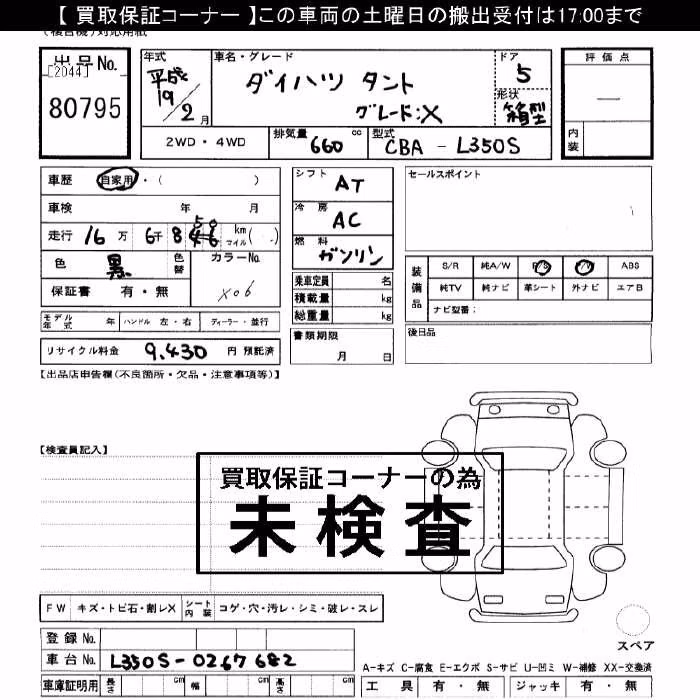 【 買取保証コーナー 】この車両の土曜日の搬出受付は17:00まで
(複合機)対応用紙
出品No.
[2044]
80795
年式
平成
19/2月
車名・グレード
ダイハツ タント
グレード:X
ドア
5
形状
箱型
評価点
—
内装
2WD・4WD
排気量 660 cc
型式 CBA - L350S
車歴 自家用・( )
車検 年 月
走行 16万 6千 8 46 50 km マイル( )
色 黒 色替
カラーNo.
X06
保証書 有・無
シフト AT
冷房 AC
燃料 ガソリン
乗車定員 名
積載量 kg
総重量 kg
セールスポイント
装備品
S/R 純A/W P/S P/W ABS
純TV 純ナビ 革シート 外ナビ エアB
ナビ型番:
モデル年式 年 ハンドル 左・右 ディーラー・並行
書類期限
月 日
後日品
リサイクル料金 9,430 円 預託済
【出品店申告欄(不良箇所・欠品・注意事項等)】
【検査員記入】
買取保証コーナーの為
未検査
FW キズ・トビ石・割レX シート内装 コゲ・穴・汚レ・シミ・破レ・スレ
スペア
登録No.
車台No. L350S-0267682
A-キズ C-腐食 E-エクボ S-サビ U-凹ミ W-補修 XX-交換済
車庫証明用 長さ cm 幅 cm 高さ cm
工具 有・無 ジャッキ 有・無